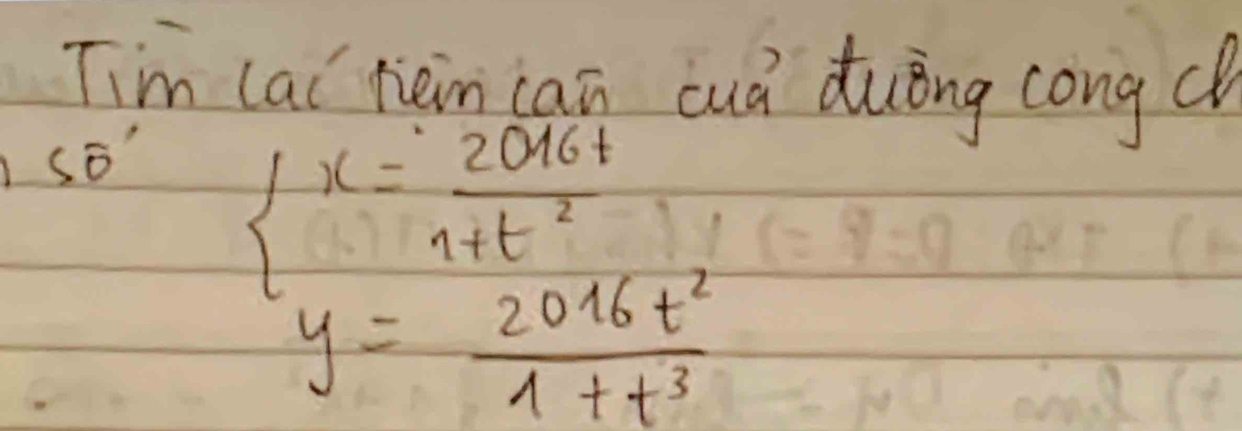 Tìm các tiệm cận của đường cong ch
số { x = 2016t / 1+t²
y = 2016t² / 1+t³